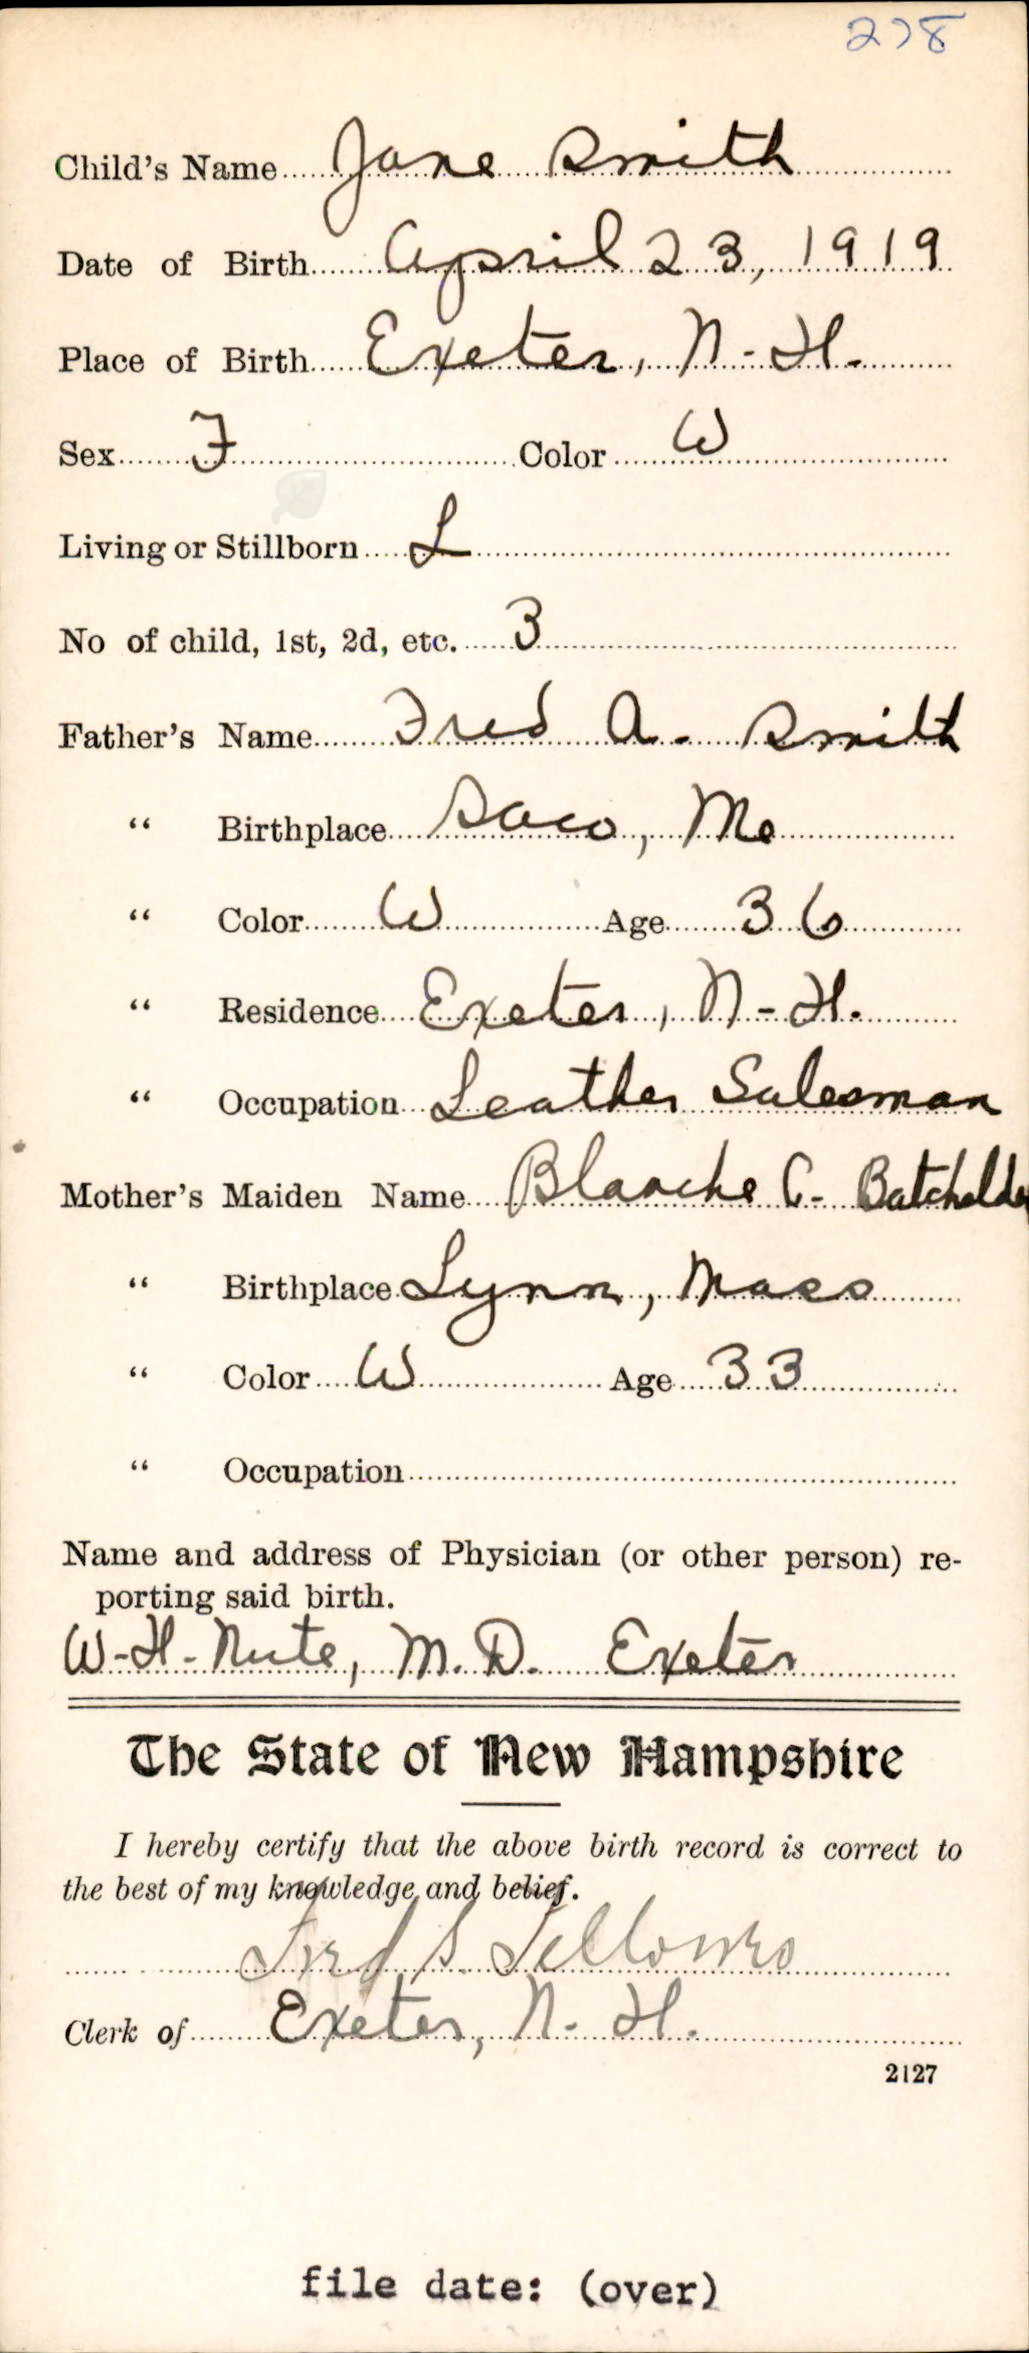 278
Child's Name Jane Smith
Date of Birth April 23, 1919
Place of Birth Exeter, N-H.
Sex F Color W
Living or Stillborn L
No of child, 1st, 2d, etc. 3
Father's Name Fred A. Smith
“ Birthplace Saco, Me
“ Color W Age 36
“ Residence Exeter, N-H.
“ Occupation Leather Salesman
Mother's Maiden Name Blanche C. Batchelder
“ Birthplace Lynn, Mass
“ Color W Age 33
“ Occupation
Name and address of Physician (or other person) re-
porting said birth.
W-H-Nute, M.D. Exeter
The State of New Hampshire
I hereby certify that the above birth record is correct to
the best of my knowledge and belief.
Fred S. Fellows
Clerk of Exeter, N. H.
2127
file date: (over)